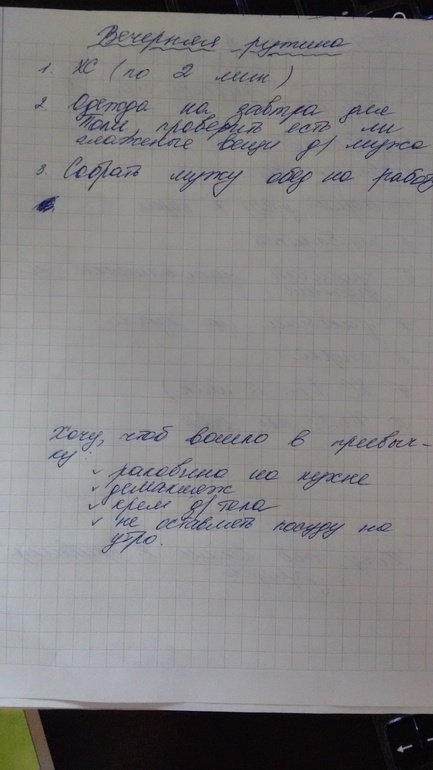 Вечерняя рутина
1. ХС (по 2 мин)
2. Одежда на завтра для
Поли проверить есть ли
глаженые вещи д/ мужа
3. Собрать мужу обед на работу
Хочу, чтоб вошло в привыч-
ку:
✓ раковина на кухне
✓ демакияж
✓ крем д/ тела
✓ не оставлять посуду на
утро.